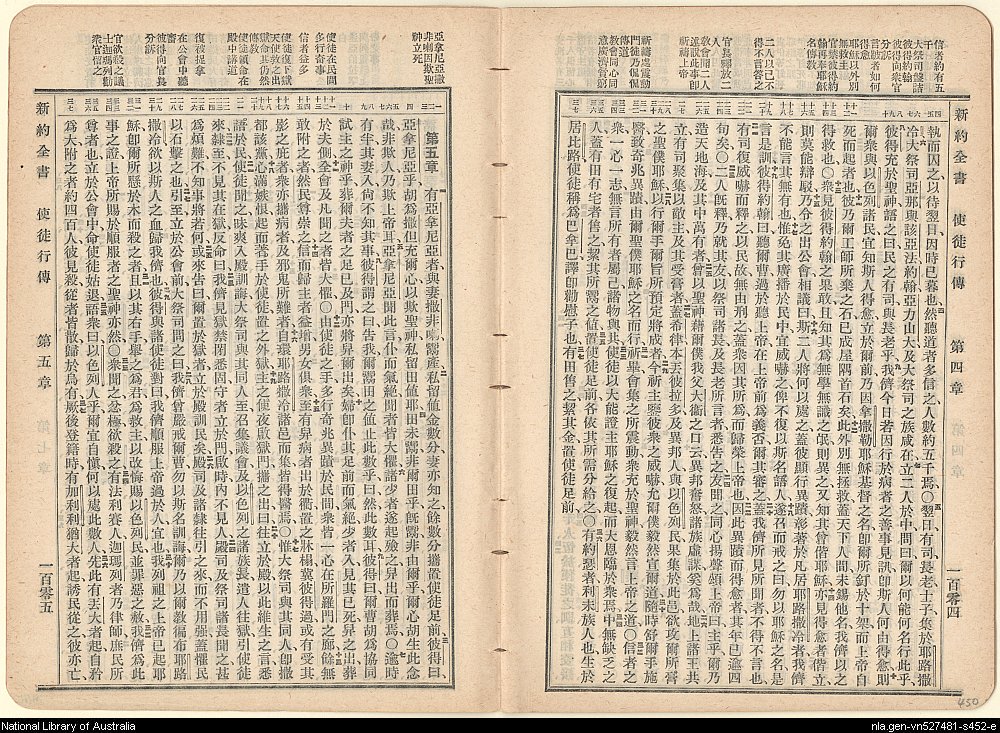 新約全書 使徒行傳 第四章 一百零四
執而囚之以待翌日因時已暮也然聽道者多信之人數約五千焉○翌日有司長老士子集於耶路撒
冷大祭司亞那與該亞法約翰亞力山大及大祭司之族咸在立二人於中間曰爾以何能何名行此乎
彼得充於聖神語之曰民之有司與長老乎我儕今日若因行於病者之善事見訊卽斯人何由得愈則
爾衆與以色列諸民宜知斯人得愈立於爾前乃因拿撒勒耶穌基督之名卽爾所釘於十架而上帝自
死而起者也彼乃爾工師所棄之石已成屋隅首石矣此外別無拯救蓋天下人間未錫他名我儕以之
得救也○衆見彼得約翰之果敢且知其爲無學無識之氓則異之又知其曾偕耶穌亦見得愈者偕立
則莫能辯駁乃令之出公會相議曰斯二人將何以處之蓋彼顯行異蹟彰著於凡居耶路撒冷者我儕
不能言其無有也惟免其廣播於民中宜威嚇之俾不復以斯名語人遂召而戒之曰勿以耶穌之名是
言是訓彼得約翰曰聽爾曹過於聽上帝在上帝前爲義否爾其審之蓋我儕所見所聞者不得不言也
有司復威嚇而釋之以民故無由刑之蓋衆因其所爲而歸榮上帝也因此異蹟而得愈者其年已逾四
旬矣○二人得釋乃就其友以祭司諸長及長老所言者悉告之友聞之同心揚聲頌上帝曰主乎爾乃
造天地海及其中萬有者曾以聖神藉爾僕我父大衞之口云異邦奮怒諸族虛謀奚爲哉地上諸王其
立有司聚集以敵主及其受膏者蓋希律本丟彼拉多及異邦人與以色列民果集於此邑欲攻爾所膏
之聖僕耶穌以行爾手爾旨所預定將成者今祈主鑒彼衆之威嚇允爾僕毅然宣爾道隨時舒爾手施
醫致奇兆異蹟由爾聖僕耶穌之名而行祈畢會集之所震動衆充於聖神毅然言上帝之道○信者之
衆一心一志無言所有者屬己諸物與共使徒以大能證主耶穌之復起而大恩臨於衆焉中無缺乏之
人蓋有田有宅者售之挈其所鬻之値置使徒足前各依其所需分給之○有約瑟者利未族人也生於
居比路使徒稱爲巴拿巴譯卽勸慰子也有田售之挈其金置使徒足前
新約全書 使徒行傳 第五章 一百零五
第五章 有亞拿尼亞者與妻撒非喇鬻產私留値金數分妻亦知之餘數分攜置使徒足前彼得曰
亞拿尼亞乎胡爲撒但充爾心以欺聖神私留田値耶田未鬻非爾田乎旣鬻非由爾乎爾心胡生此念
哉非欺人乃欺上帝耳亞拿尼亞聞此言仆而氣絕聞者皆大懼諸少者遂起殮之舁出而葬焉○逾時
有半其妻入尙不知其事彼得謂之曰告我爾鬻田之値止此數乎曰然此數耳彼得曰爾曹胡爲協同
試主之神乎葬爾夫者之足已及門亦將舁爾出矣婦卽仆其足前而氣絕少者入見其已死舁之出葬
於夫側全會及凡聞之者皆大懼○由使徒之手多行奇兆異蹟於民間衆皆一心在所羅門之廊餘無
敢附之者然民尊崇之信而歸主者益增男女俱衆至有舁病者出於衢置之牀榻冀彼得過或有受其
影之庇者衆亦攜病者及邪鬼所難者自環耶路撒冷諸邑而集皆得醫焉○惟大祭司與其同人卽撒
都該黨心滿嫉恨起而著手於使徒置之外獄主之使夜啟獄門攜之出曰往立於殿以此維生之言悉
語於民使徒聞之昧爽入殿訓誨大祭司與其同人至召集議會及以色列之諸族長遣人往獄引使徒
來隸至不見其在獄反命曰我儕見獄禁閉悉固守者立於門啟時內不見人殿司及祭司諸長聞之甚
爲煩難不知事將若何或來告曰爾置於獄者立於殿訓民矣殿司及諸隸往引之來而不用强蓋懼民
以石擊之也引至立於公會前大祭司問之曰我儕曾嚴戒爾曹勿以斯名訓誨爾乃以爾教徧布耶路
撒冷欲以斯人之血歸我儕也彼得與諸使徒對曰我儕順服上帝過於人宜也我列祖之上帝已起耶
穌卽爾所懸於木而殺之者且以其右手舉之爲君爲救主以改悔賜以色列民並罪惡之赦我儕爲此
事之證上帝所賜於順服者之聖神亦然○衆聞之忿極欲殺之有法利賽人迦瑪列者乃律師庶民所
尊者也立於公會中命使徒姑退語衆曰以色列人乎爾宜自愼何以處此數人先此有丟大者起自矜
爲大附之者約四百人彼見殺從者皆散歸於烏有厥後登籍時有加利利猶大者起誘民從之彼亦亡
National Library of Australia
nla.gen-vn527481-s452-e